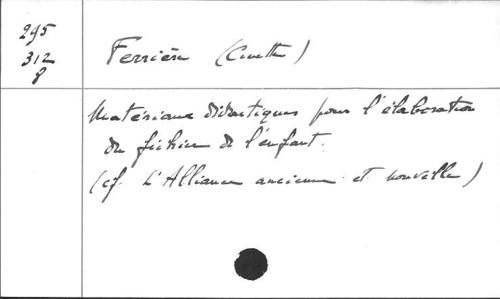 295
312
8
Ferrière (Cosette)
Matériaux didactiques pour l'élaboration
du fichier de l'enfant.
(cf. L'Alliance ancienne et nouvelle)